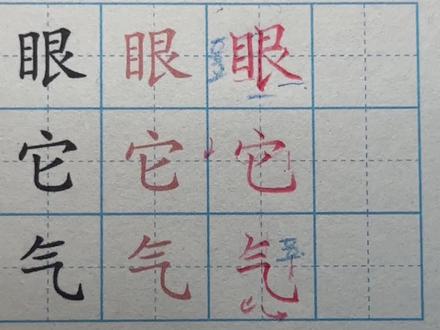 眼 眼 眼
它 它 它
气 气 气